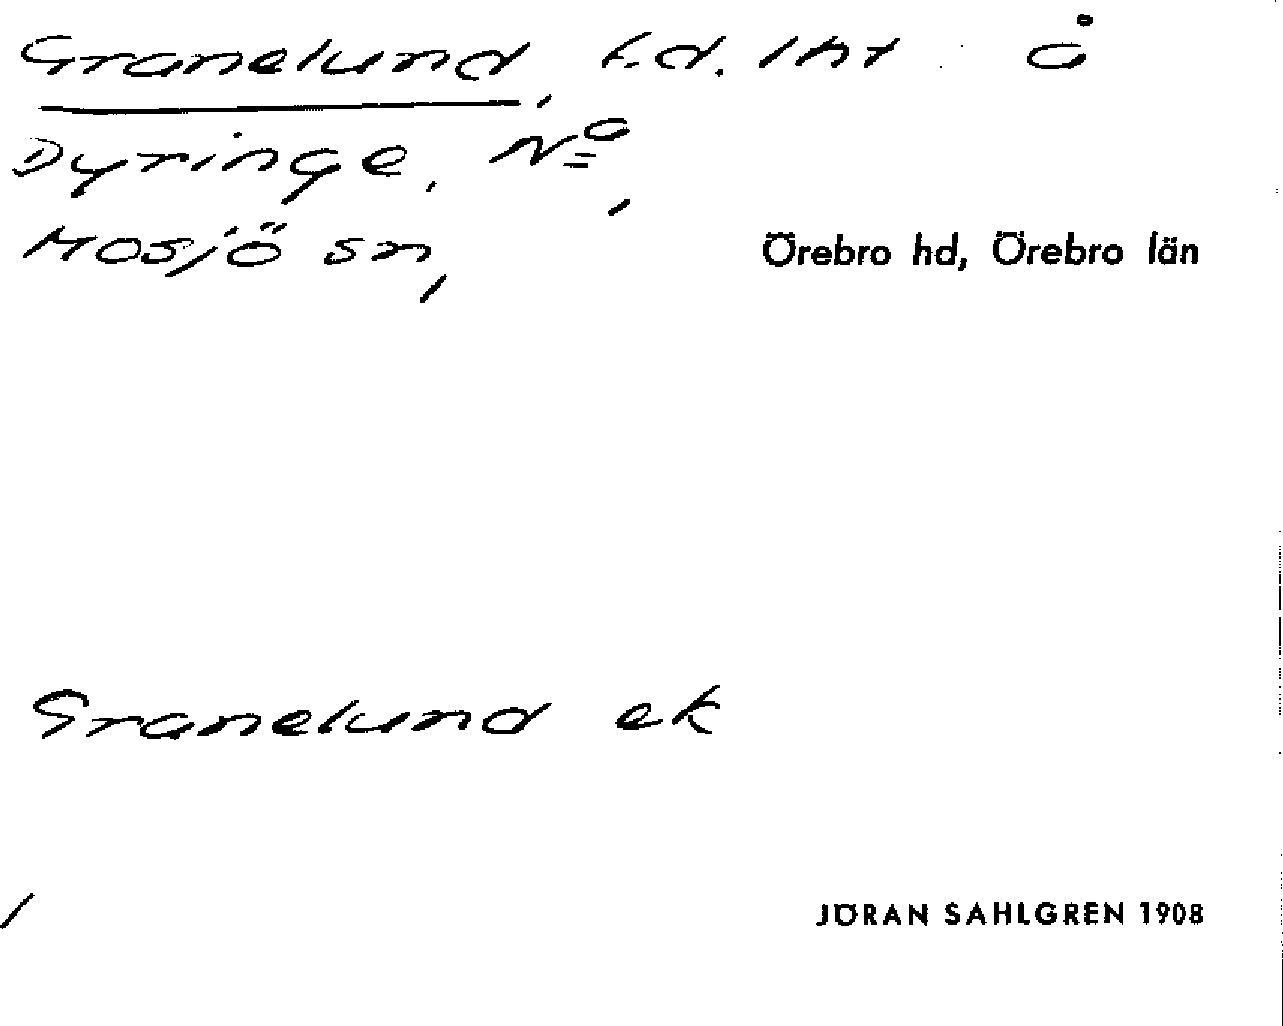 Granelund, f.d. lht å
Dyringe, Nª,
Mosjö sn, Örebro hd, Örebro län
Granelund ek
JÖRAN SAHLGREN 1908